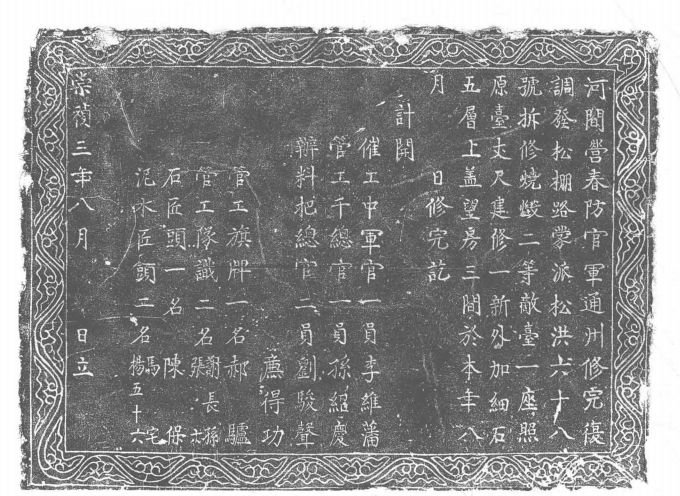 河間營春防官軍通州修完復
調發松棚路蒙派松洪六十八
號拆修燒燬二等敵臺一座照
原臺丈尺建修一新外加細石
五層上盖望房三間於本年八
月　　日修完訖
計開
催工中軍官一員李維藩
管工千總官一員孫紹慶
辦料把總官二員劉駿聲
廌得功
管工旗牌一名郝驢
管工隊識二名謝長孫
張六
石匠頭一名陳保
泥水匠頭二名馬宅
楊五十六
崇禎三年八月　　日立